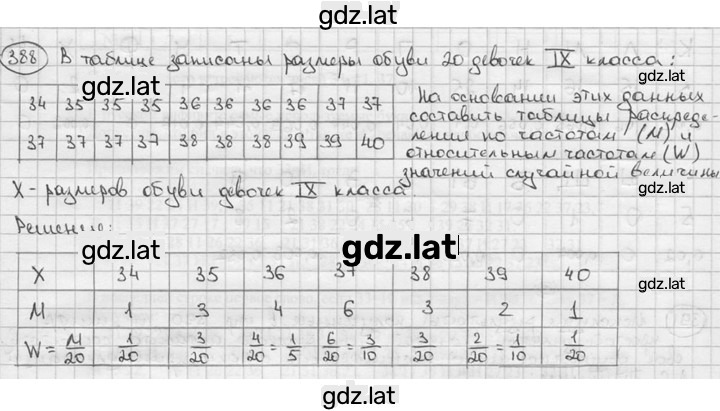 gdz.lat
388 В таблице записаны размеры обуви 20 девочек IX класса:
34 35 35 35 36 36 36 36 37 37
37 37 37 37 38 38 38 39 39 40
На основании этих данных
составить таблицы распреде-
ления по частотам (М) и
относительным частотам (W)
значений случайной величины
X - размеров обуви девочек IX класса.
Решение:
X 34 35 36 37 38 39 40
М 1 3 4 6 3 2 1
W = М/20 1/20 3/20 4/20 = 1/5 6/20 = 3/10 3/20 2/20 = 1/10 1/20
gdz.lat
gdz.lat
gdz.lat
gdz.lat
gdz.lat
gdz.lat
gdz.lat
gdz.lat
gdz.lat
gdz.lat